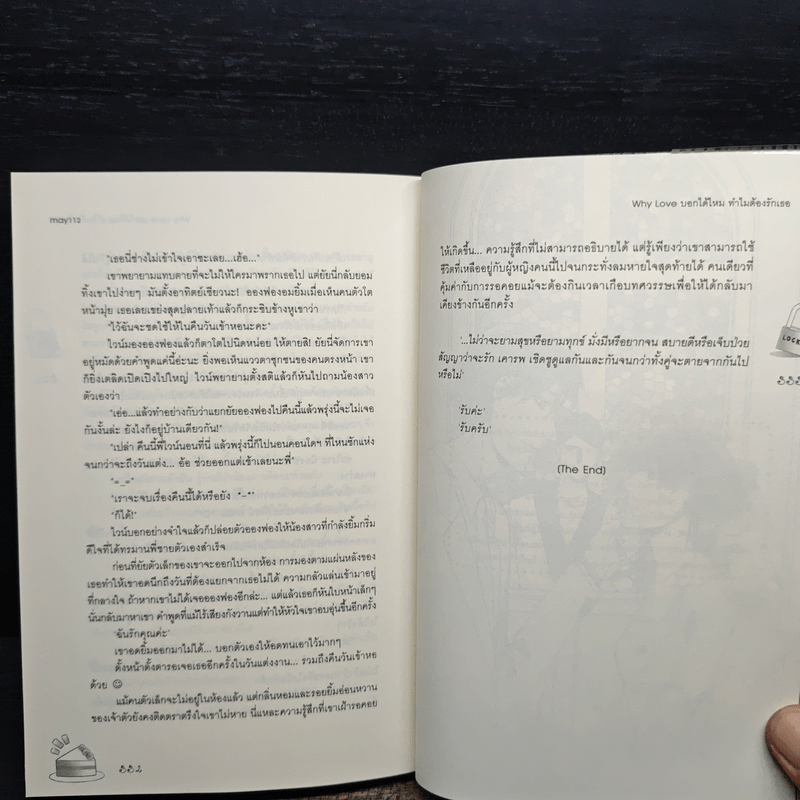 may112
"เธอนี่ช่างไม่เข้าใจเอาซะเลย...เฮ้อ..."
เขาพยายามแทบตายที่จะไม่ให้ใครมาพรากเธอไป แต่ยัยนี่กลับยอม
ทิ้งเขาไปง่ายๆ มันตั้งอาทิตย์เชียวนะ! อองฟองอมยิ้มเมื่อเห็นคนตัวโต
หน้ามุ่ย เธอเลยเขย่งสุดปลายเท้าแล้วก็กระซิบข้างหูเขาว่า
"ไว้ฉันจะชดใช้ให้ในคืนวันเข้าหอนะคะ"
ไวน์มองอองฟองแล้วก็ตาโตไปนิดหน่อย ให้ตายสิ! ยัยนี่จัดการเขา
อยู่หมัดด้วยคำพูดแค่นี้อ่ะนะ ยิ่งพอเห็นแววตาซุกซนของคนตรงหน้า เขา
ก็ยิ่งเตลิดเปิดเปิงไปใหญ่ ไวน์พยายามตั้งสติแล้วก็หันไปถามน้องสาว
ตัวเองว่า
"เอ่อ...แล้วทำอย่างกับว่าแยกยัยอองฟองไปคืนนี้แล้วพรุ่งนี้จะไม่เจอ
กันงั้นล่ะ ยังไงก็อยู่บ้านเดียวกัน!"
"เปล่า คืนนี้พี่ไวน์นอนที่นี่ แล้วพรุ่งนี้ก็ไปนอนคอนโดฯ ที่ไหนซักแห่ง
จนกว่าจะถึงวันแต่ง... อ้อ ช่วยออกแต่เช้าเลยนะพี่"
"=_="
"เราจะจบเรื่องคืนนี้ได้หรือยัง *-*"
"ก็ได้!"
ไวน์บอกอย่างจำใจแล้วก็ปล่อยตัวอองฟองให้น้องสาวที่กำลังยิ้มกริ่ม
ดีใจที่ได้ทรมานพี่ชายตัวเองสำเร็จ
ก่อนที่ยัยตัวเล็กของเขาจะออกไปจากห้อง การมองตามแผ่นหลังของ
เธอทำให้เขาอดนึกถึงวันที่ต้องแยกจากเธอไม่ได้ ความกลัวแล่นเข้ามาอยู่
ที่กลางใจ ถ้าหากเขาไม่ได้เจออองฟองอีกล่ะ... แต่แล้วเธอก็หันใบหน้าเล็กๆ
นั่นกลับมาหาเขา คำพูดที่แม้ไร้เสียงกังวานแต่ทำให้หัวใจเขาอบอุ่นขึ้นอีกครั้ง
'ฉันรักคุณค่ะ'
เขาอดยิ้มออกมาไม่ได้... บอกตัวเองให้อดทนเอาไว้มากๆ
ตั้งหน้าตั้งตารอเจอเธออีกครั้งในวันแต่งงาน... รวมถึงคืนวันเข้าหอ
ด้วย ☺
แม้คนตัวเล็กจะไม่อยู่ในห้องแล้ว แต่กลิ่นหอมและรอยยิ้มอ่อนหวาน
ของเจ้าตัวยังคงติดตราตรึงใจเขาไม่หาย นี่แหละความรู้สึกที่เขาเฝ้ารอคอย
Why Love บอกได้ไหม ทำไมต้องรักเธอ
ให้เกิดขึ้น... ความรู้สึกที่ไม่สามารถอธิบายได้ แต่รู้เพียงว่าเขาสามารถใช้
ชีวิตที่เหลืออยู่กับผู้หญิงคนนี้ไปจนกระทั่งลมหายใจสุดท้ายได้ คนเดียวที่
คุ้มค่ากับการรอคอยแม้จะต้องกินเวลาเกือบทศวรรษเพื่อให้ได้กลับมา
เคียงข้างกันอีกครั้ง
'...ไม่ว่าจะยามสุขหรือยามทุกข์ มั่งมีหรือยากจน สบายดีหรือเจ็บป่วย
สัญญาว่าจะรัก เคารพ เชิดชูดูแลกันและกันจนกว่าทั้งคู่จะตายจากกันไป
หรือไม่'
'รับค่ะ'
'รับครับ'
(The End)
LOCK